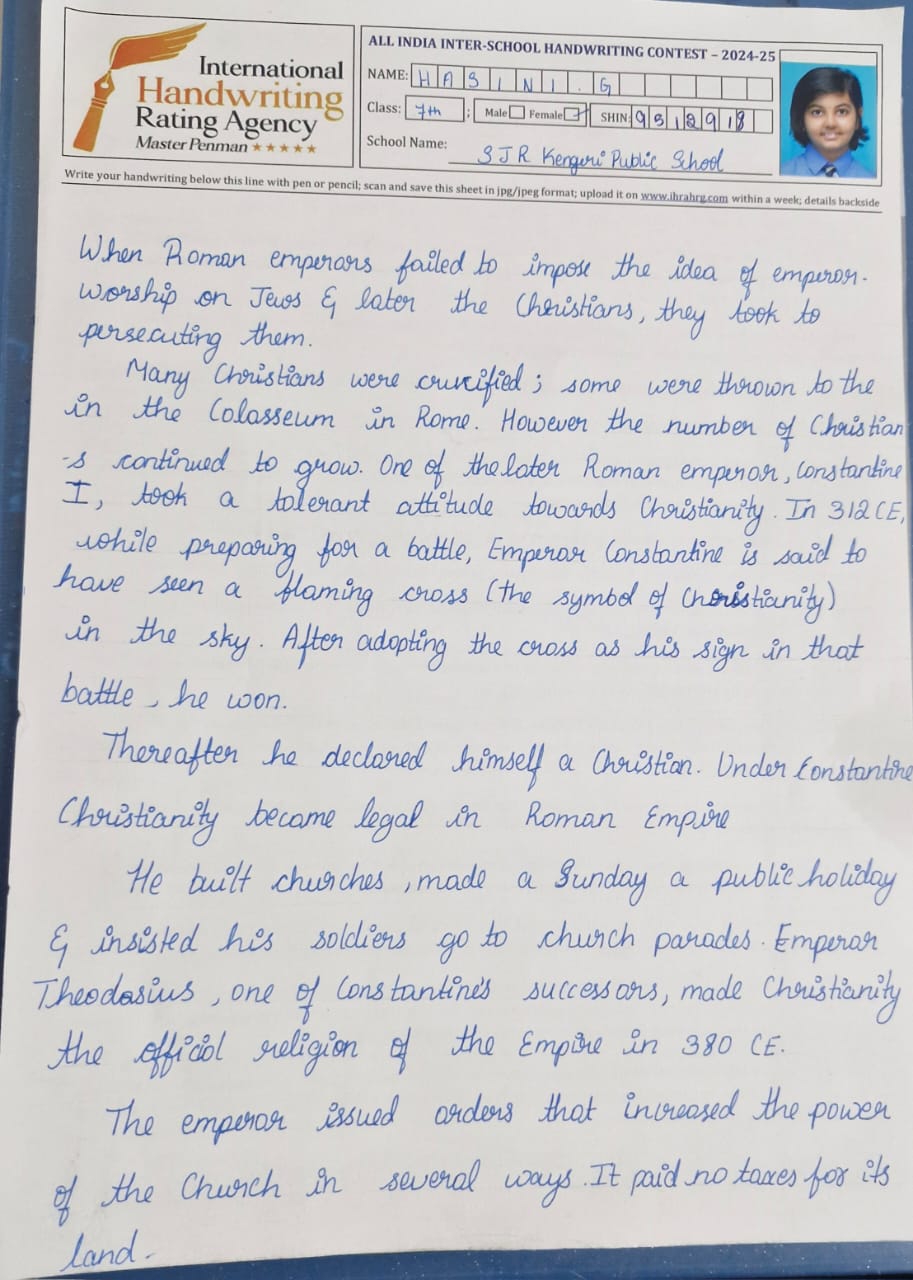 International
Handwriting
Rating Agency
Master Penman ★★★★★
ALL INDIA INTER-SCHOOL HANDWRITING CONTEST – 2024-25
NAME: HASINI.G
Class: 7th : Male Female SHIN: 9512918
School Name: SJR Kengeri Public School
Write your handwriting below this line with pen or pencil; scan and save this sheet in jpg/jpeg format; upload it on www.ihrahrg.com within a week; details backside
When Roman emperors failed to impose the idea of emperor-
worship on Jews & later the Christians, they took to
persecuting them.
Many Christians were crucified; some were thrown to the
in the Colosseum in Rome. However the number of Christian
-s continued to grow. One of the later Roman emperor, Constantine
I, took a tolerant attitude towards Christianity. In 312 CE,
while preparing for a battle, Emperor Constantine is said to
have seen a flaming cross (the symbol of Christianity)
in the sky. After adopting the cross as his sign in that
battle, he won.
Thereafter he declared himself a Christian. Under Constantine
Christianity became legal in Roman Empire
He built churches, made a Sunday a public holiday
& insisted his soldiers go to church parades. Emperor
Theodosius, one of Constantine's successors, made Christianity
the official religion of the Empire in 380 CE.
The emperor issued orders that increased the power
of the Church in several ways. It paid no taxes for its
land.